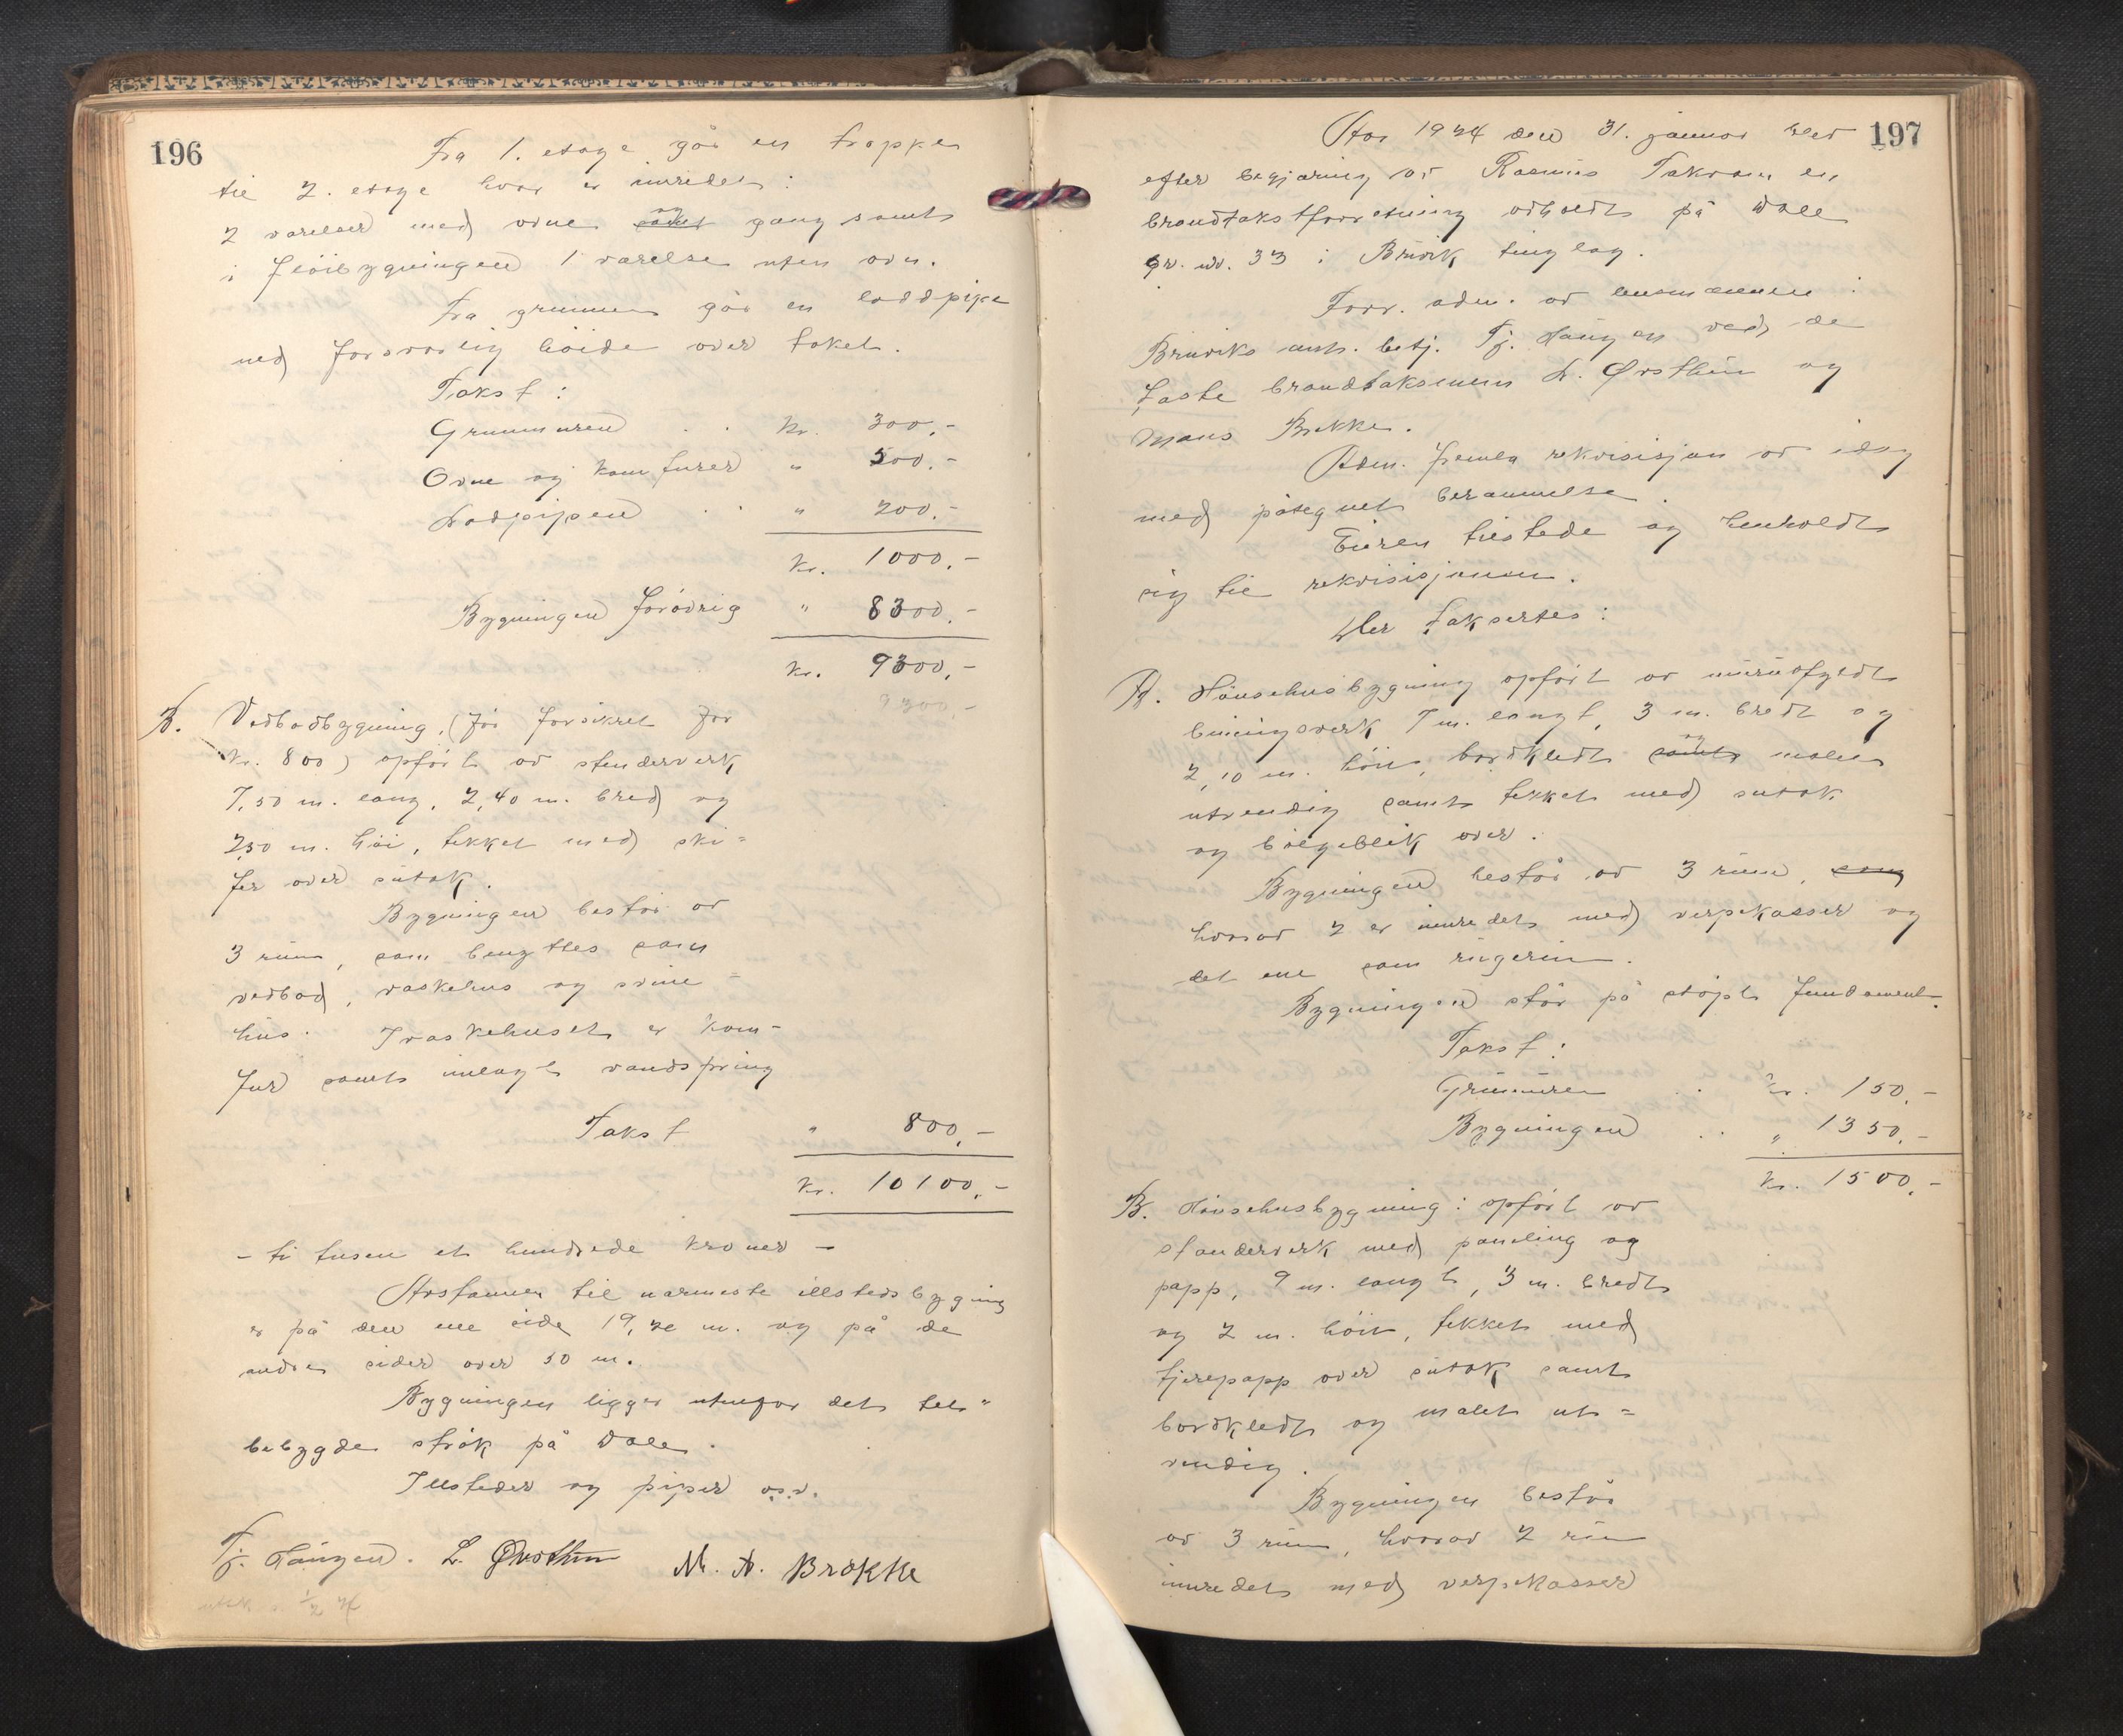 196
Fra 1. etage går en trappe
til 2. etage hvor er innredet:
2 værelser med ovne samt og gang samt
i fløibygningen 1 værelse uten ovn.
Fra grunnen går en loddpipe
med forsvarlig høide over taket.
Takst:
Grunnmuren . . kr. 300,-
Ovne og komfurer " 500,-
Lodpipen . . " 200,-
kr. 1000,-
Bygningen forøvrig " 8300,-
kr. 9300,-
9300,-
B. Vedbodbygning, (før forsikret for
kr. 800) opført av stenderverk
7,50 m. lang, 2,40 m. bred og
2,50 m. høi, tekket med ski=
fer over sutak.
Bygningen består av
3 rum, som benyttes som
vedbod, vaskehus og svine=
hus. I vaskehuset er kom-
fur samt innlagt vandspring
Takst " 800,-
kr. 10100,-
- ti tusen et hundrede kroner -
Avstanden til nærmeste illstedsbygning
er på den ene side 19,20 m. og på de
andre sider over 50 m.
Bygningen ligger utenfor det tett=
bebygde strøk på Dale.
Illsteder og piper o.s.v.
Tj. Haugen. L. Ørsthun M. A. Brække
197
År 1924 den 31. januar blev
efter begjæring av Rasmus Takvam en
brandtakstforretning avholdt på Dale
gr. nr. 33 i Bruvik tinglag.
Forr. adm. av lensmannen i
Bruviks aut. betj. Tj. Haugen ved de
faste brandtaksmenn L. Ørsthun og
Mons Brekke.
Adm. fremla rekvisisjon av idag
med påtegnet berammelse.
Eieren tilstede og henholdt
sig til rekvisisjonen.
Der taksertes:
A. Hønsehusbygning opført av murutfyldt
binningsverk 7 m. langt, 3 m. bredt og
2,10 m. høit, bordkledt samt og malet
utvendig samt tekket med sutak
og bølgeblik over.
Bygningen består av 3 rum, som
hvorav 2 er innredet med verpekasser og
det ene som rugerum.
Bygningen står på støpt fundament.
Takst:
Grunnmuren . kr. 150,-
Bygningen . . " 1350,-
kr. 1500,-
B. Hønsehusbygning: opført av
stenderverk med paneling og
papp, 9 m. langt, 3 m. bredt
og 2 m. høit, tekket med
tjærepapp over sutak samt
bordkledt og malet ut=
vendig.
Bygningen består
av 3 rum, hvorav 2 rum
innredet med verpekasser